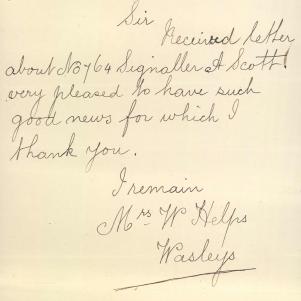 Sir
Received letter
about No 764 Signaller A Scott.
very pleased to have such
good news for which I
thank you.
I remain
Mrs W Helps
Wasleys